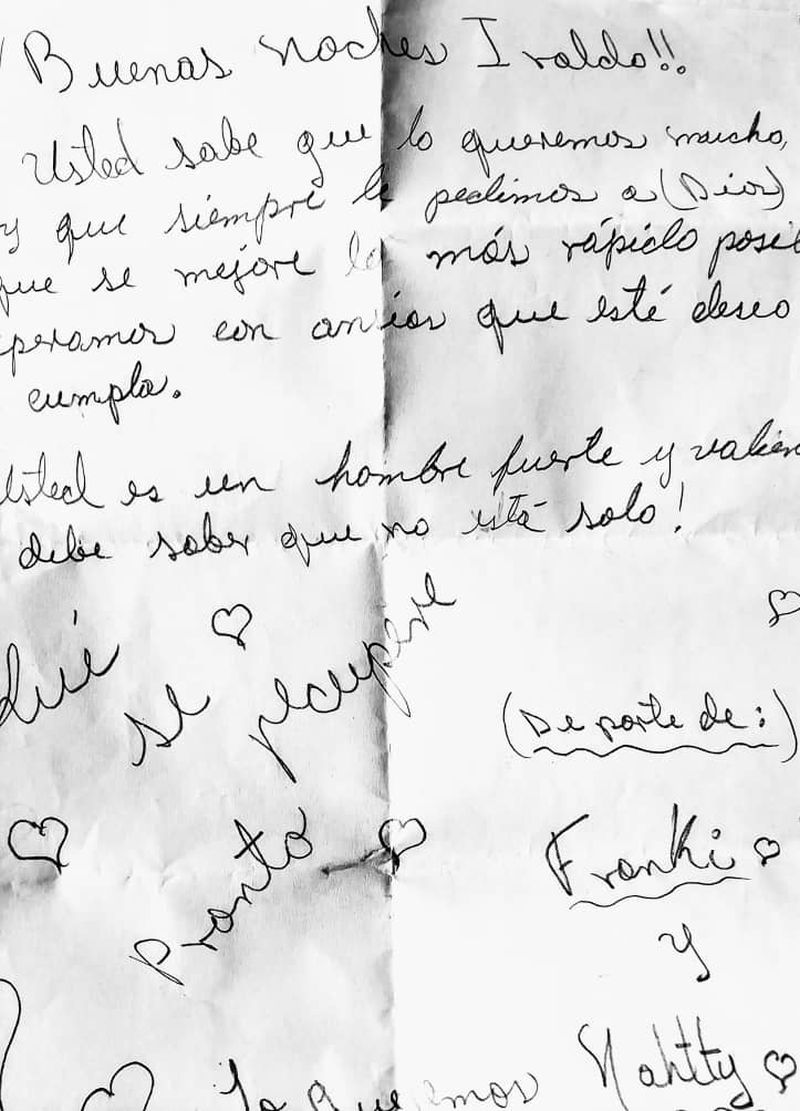 Buenas noches Iraldo!!
Usted sabe que lo queremos mucho,
y que siempre le pedimos a (Dios)
que se mejore lo más rápido posi
peramos con ansias que esté deseo
cumpla.
Usted es un hombre fuerte y valien
debe saber que no está solo!
Qué se recupere
pronto
(De parte de:)
Franki
y
Nahtty
Lo queremos